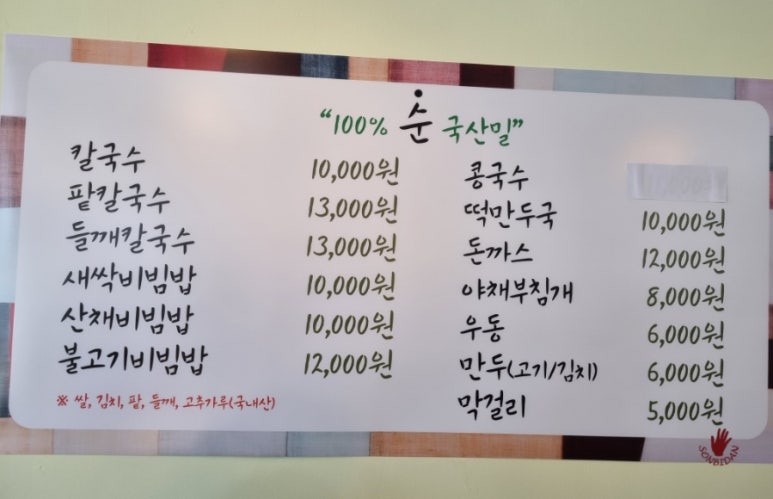 “100% 순 국산밀”
칼국수 10,000원
팥칼국수 13,000원
들깨칼국수 13,000원
새싹비빔밥 10,000원
산채비빔밥 10,000원
불고기비빔밥 12,000원
※ 쌀, 김치, 팥, 들깨, 고추가루(국내산)
콩국수
떡만두국 10,000원
돈까스 12,000원
야채부침개 8,000원
우동 6,000원
만두(고기/김치) 6,000원
막걸리 5,000원
SONBIDAN